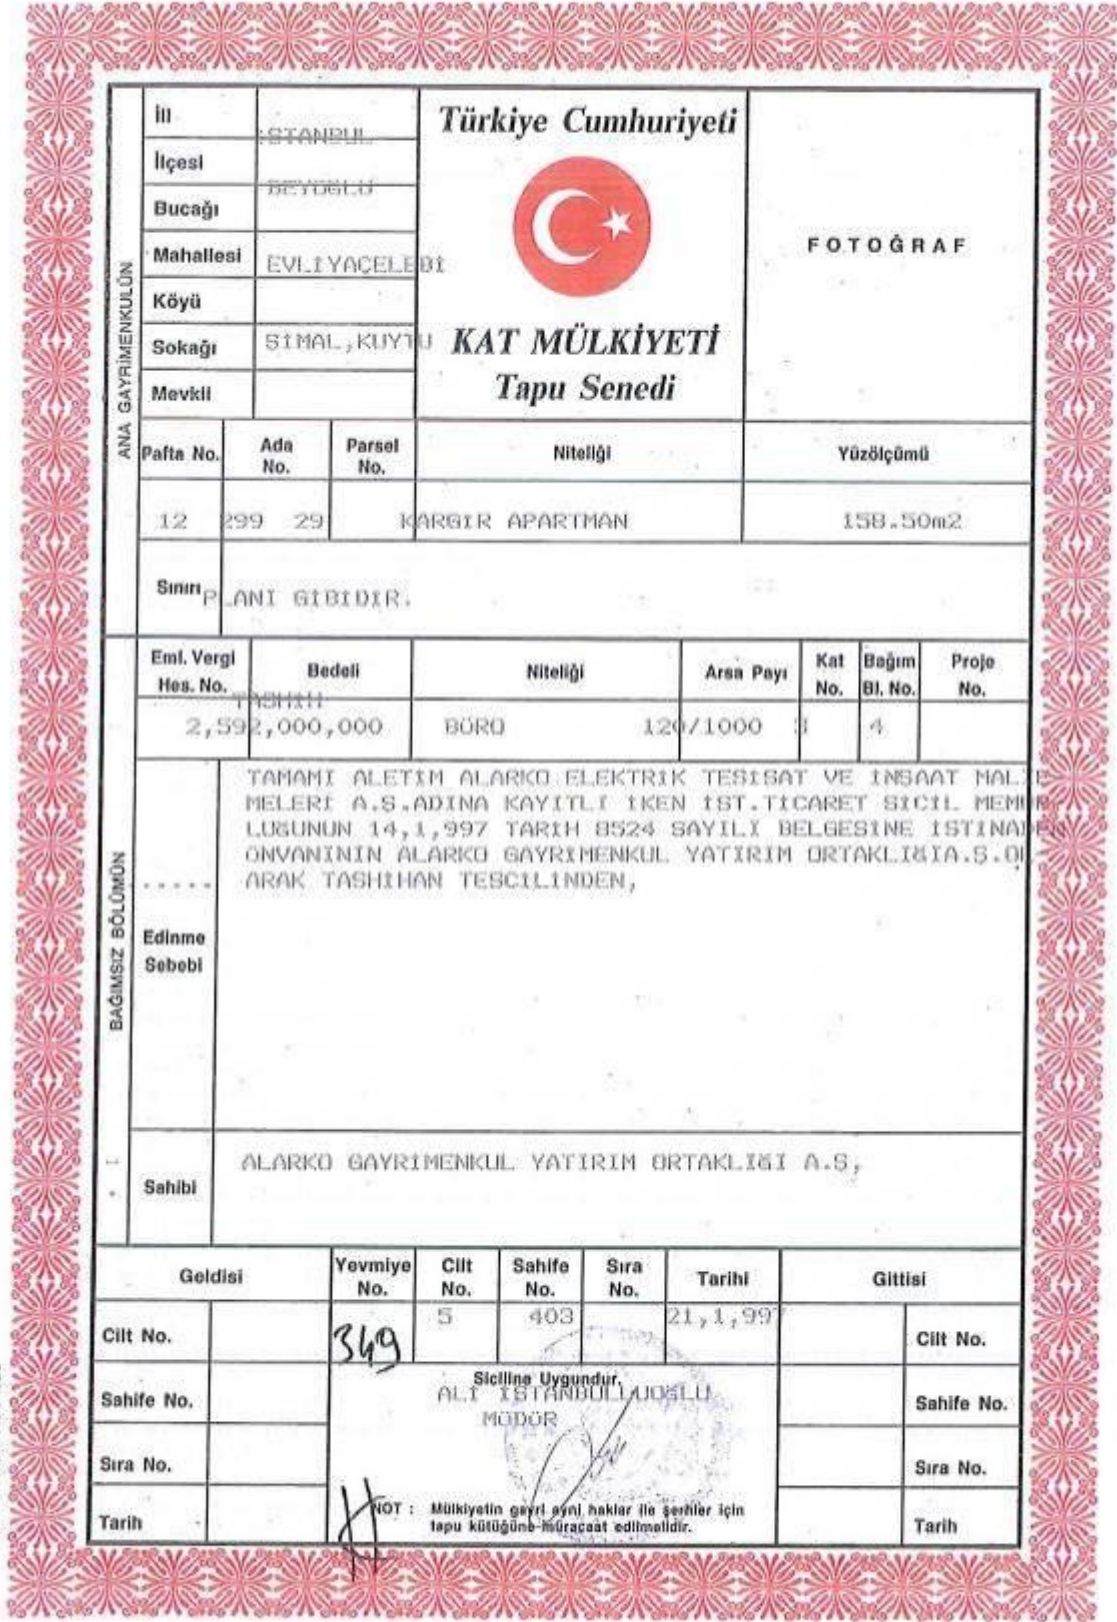 İli
İSTANBUL
İlçesi
BEYOĞLU
Bucağı
Mahallesi EVLİYAÇELEBİ
Köyü
Sokağı SİMAL,KUYTU
Mevkii
ANA GAYRİMENKULÜN
Türkiye Cumhuriyeti
KAT MÜLKİYETİ
Tapu Senedi
FOTOĞRAF
Pafta No. Ada No. Parsel No. Niteliği Yüzölçümü
12 299 29 KARGIR APARTMAN 158.50m2
Sınırı PLANI GİBİDİR.
BAĞIMSIZ BÖLÜMÜN
Eml. Vergi Hes. No. Bedeli Niteliği Arsa Payı Kat No. Bağım Bl. No. Proje No.
TASHİH
2,592,000,000 BÜRO 120/1000 3 4
Edinme Sebebi
TAMAMI ALETİM ALARKO ELEKTRİK TESİSAT VE İNSAAT MALZE
MELERİ A.S.ADINA KAYITLI İKEN İST.TİCARET SİCİL MEMUR
LUĞUNUN 14,1,997 TARİH 8524 SAYILI BELGESİNE İSTİNADEN
ÜNVANININ ALARKO GAYRİMENKUL YATIRIM ORTAKLIĞIA.Ş.OL
ARAK TASHİHAN TESCİLİNDEN,
Sahibi ALARKO GAYRİMENKUL YATIRIM ORTAKLIĞI A.S,
Geldisi Yevmiye No. Cilt No. Sahife No. Sıra No. Tarihi Gittisi
349 5 403 21,1,997
Cilt No. Cilt No.
Siciline Uygundur.
ALİ İSTANBULLUOĞLU
Sahife No. Sahife No.
MÜDÜR
Sıra No. Sıra No.
NOT : Mülkiyetin gayri ayni haklar ile şerhler için
tapu kütüğüne müracaat edilmelidir.
Tarih Tarih